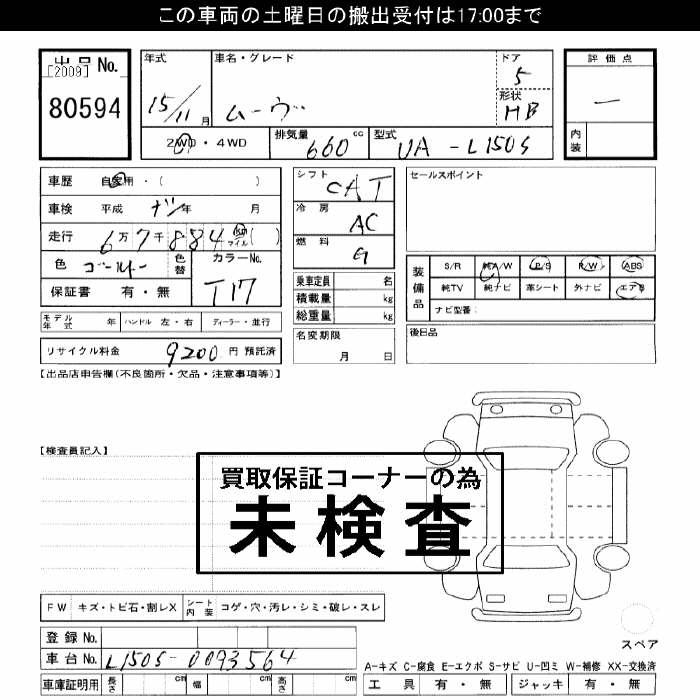 この車両の土曜日の搬出受付は17:00まで
出品 No.
[2009]
80594
年式
15/11月
車名・グレード
ムーヴ
ドア
5
形状
HB
評価点
ー
内装
2WD・4WD
排気量
660 cc
型式
UA - L150S
車歴 自家用・( )
車検 平成 ナシ 年 月
走行 6万7千884 km マイル ( )
色 ゴールド
色替
カラーNo.
T17
保証書 有・無
シフト
CAT
冷房
AC
燃料
G
乗車定員 名
積載量 kg
総重量 kg
名変期限
月 日
セールスポイント
装備品
S/R 純A/W P/S P/W ABS
純TV 純ナビ 革シート 外ナビ エアB
ナビ型番:
後日品
モデル年式 年 ハンドル 左・右 ディーラー・並行
リサイクル料金 9200 円 預託済
【出品店申告欄(不良箇所・欠品・注意事項等)】
【検査員記入】
買取保証コーナーの為
未検査
FW キズ・トビ石・割レX シート内装 コゲ・穴・汚レ・シミ・破レ・スレ
登録 No.
車台 No. L150S-0093564
車庫証明用 長さ cm 幅 cm 高さ cm
スペア
A-キズ C-腐食 E-エクボ S-サビ U-凹ミ W-補修 XX-交換済
工具 有・無 ジャッキ 有・無